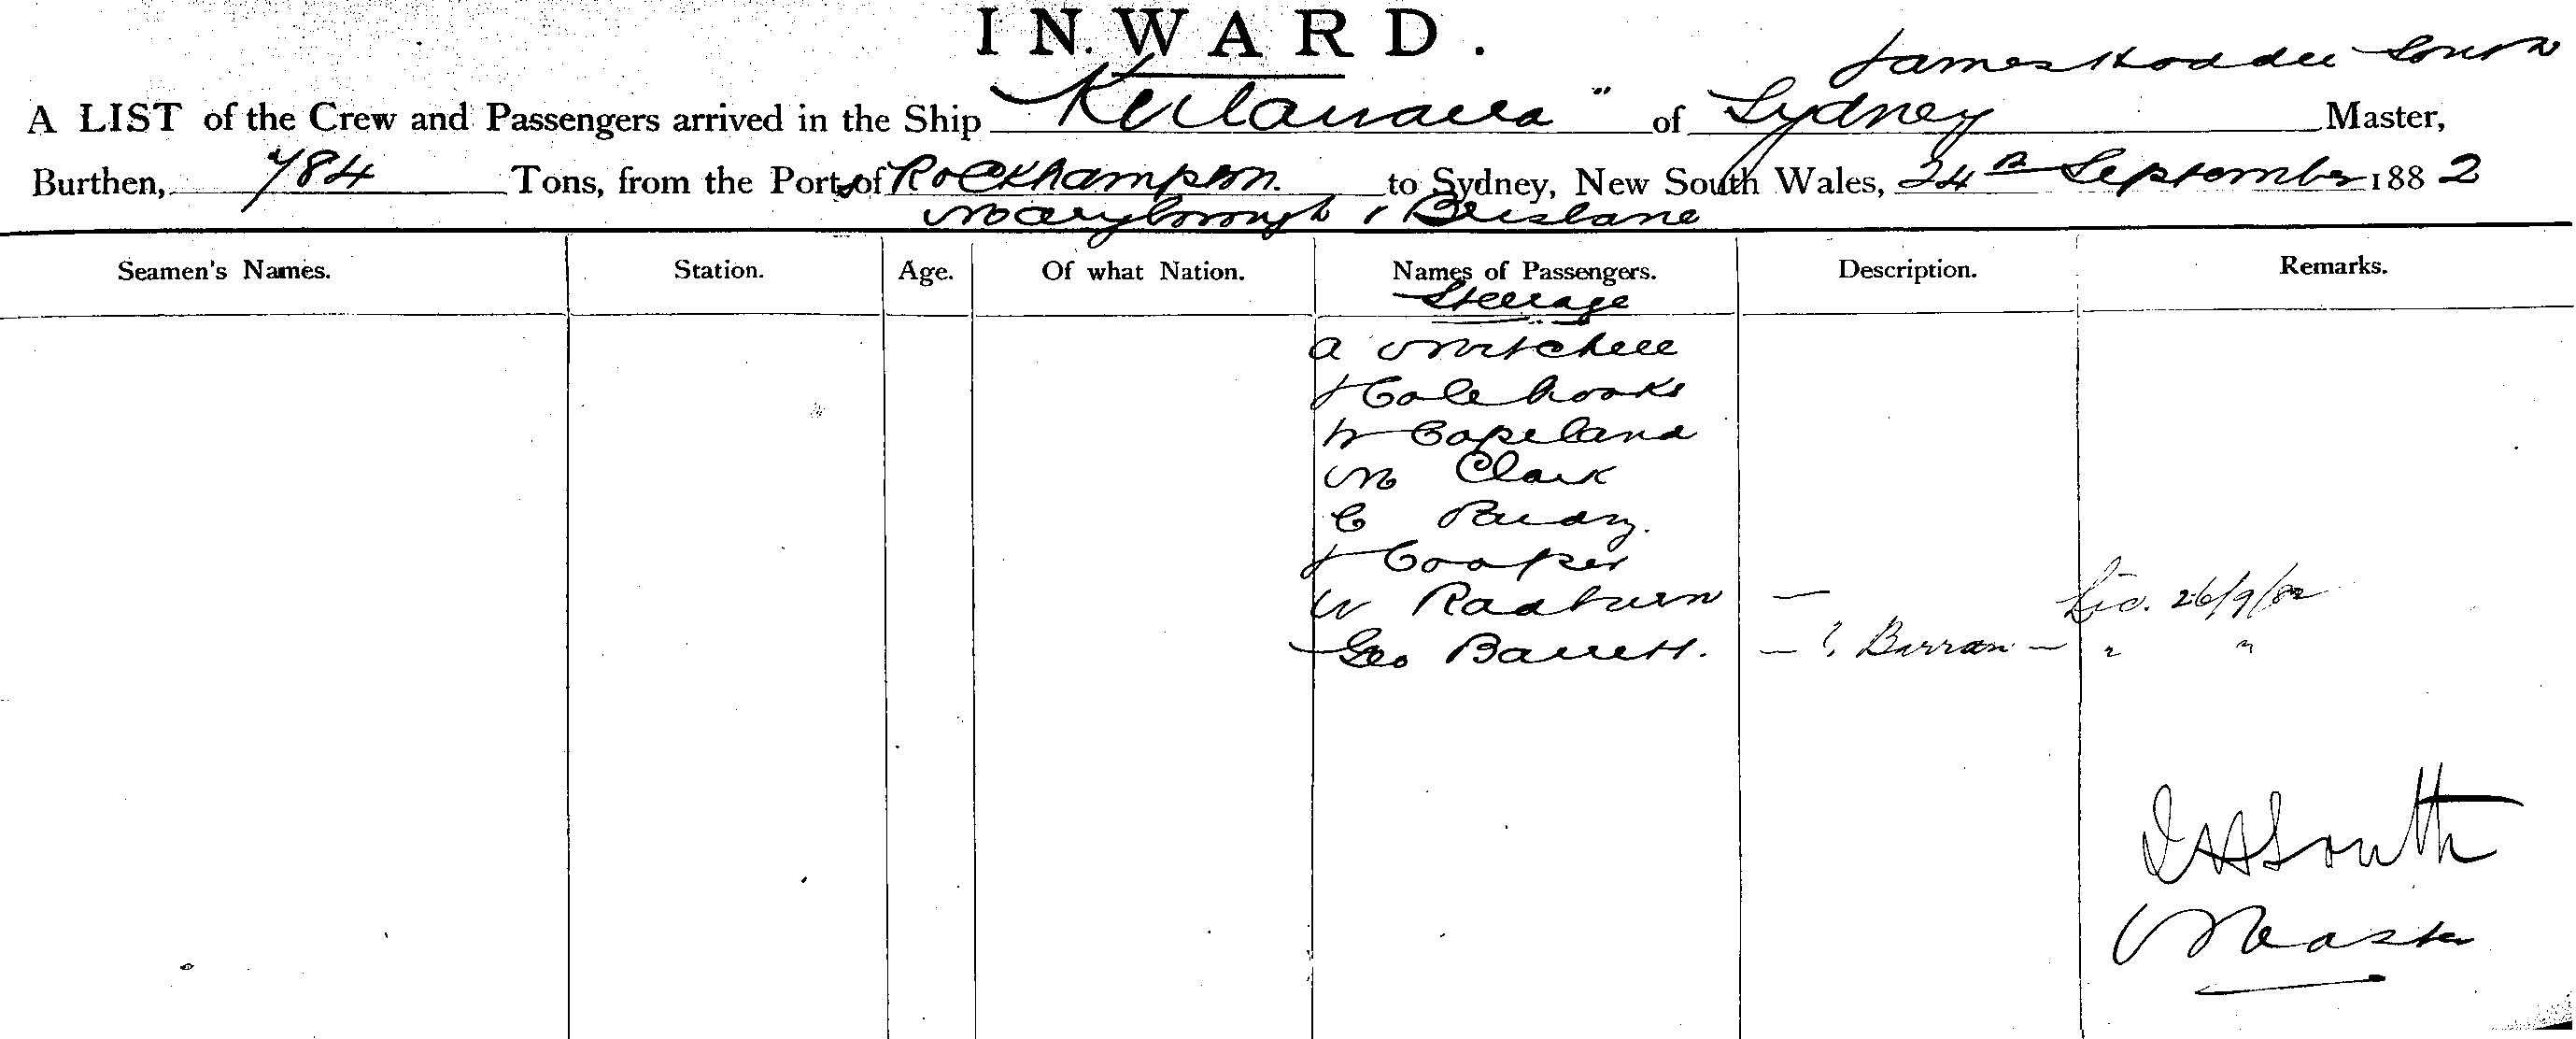 INWARD.
James Hodder South
A LIST of the Crew and Passengers arrived in the Ship "Keilawarra" of Sydney Master,
Burthen, 784 Tons, from the Ports of Rockhampton to Sydney, New South Wales, 24th September 1882
Maryborough & Brisbane
Seamen's Names. Station. Age. Of what Nation. Names of Passengers. Description. Remarks.
Steerage
A Mitchell
J Colebrooks
W Copeland
M Clark
C Purdy.
J Cooper
W Radburn — Lic. 26/9/82
Geo Barrett. — ? Barran — " "
JHSouth
Master